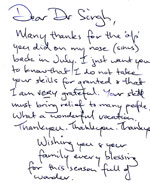 Dear Dr Singh,
Many thanks for the 'op'
you did on my nose (sins)
back in July. I just want you
to know that I do not take
your skills for granted & that
I am very grateful. Your skill
must bring relief to many people.
What a wonderful vocation.
Thankyou. Thankyou. Thankyou
Wishing you & your
family every blessing
for this season full of
wonder.